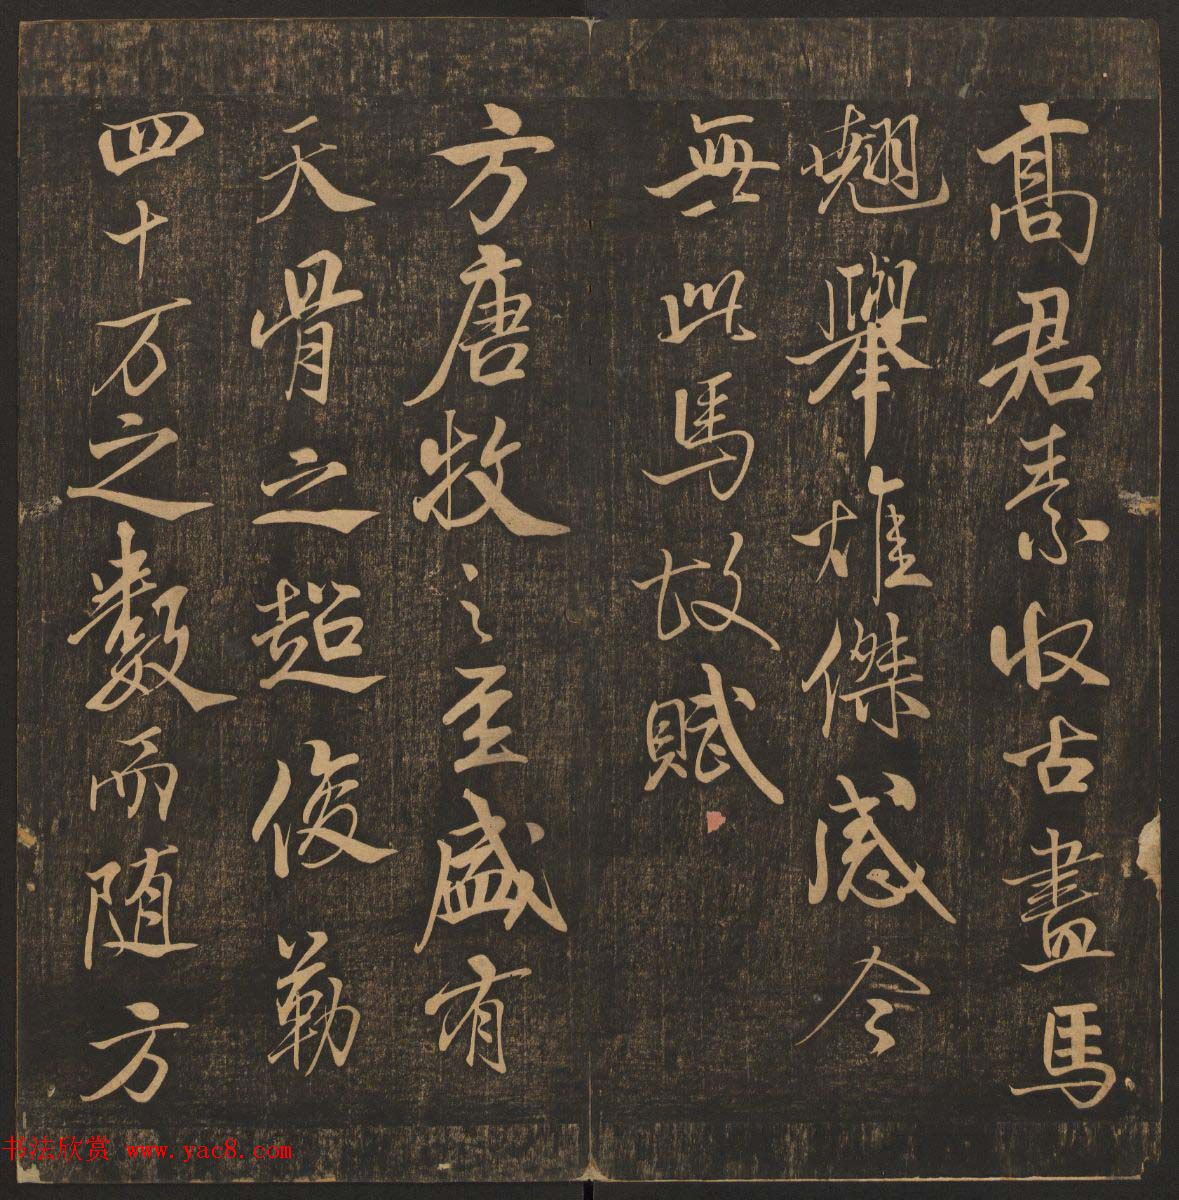 高君素收古畫馬
翹舉雄傑感今
無此馬故賦
方唐牧之至盛有
天骨之超俊勒
四十万之數而随方
书法欣赏 www.yac8.com